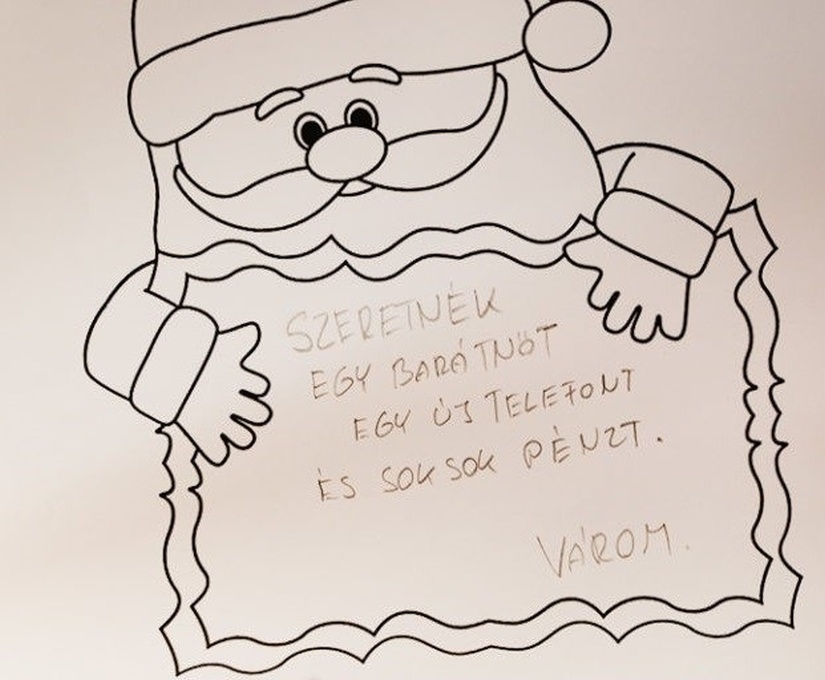 SZERETNÉK
EGY BARÁTNŐT
EGY ÚJ TELEFONT
ÉS SOK SOK PÉNZT.
VÁROM.